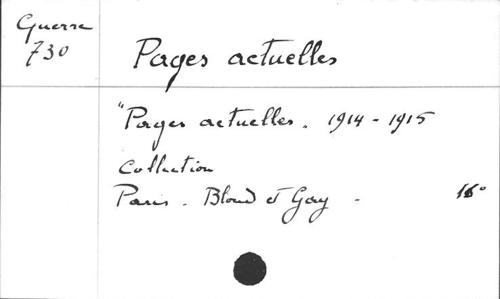 Guerre
730
Pages actuelles
"Pages actuelles. 1914-1915
Collection
Paris. Bloud et Gay - 16°